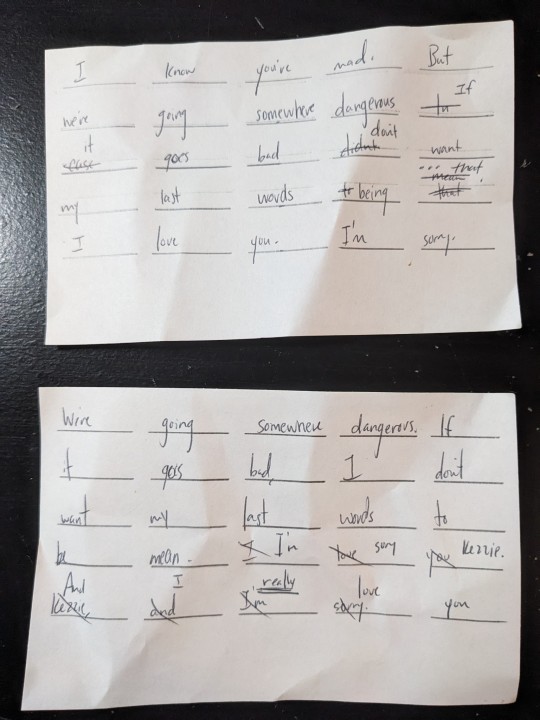 I know you're mad. But
we're going somewhere dangerous If
it goes bad don't want
my last words being ... that.
I love you. I'm sorry.
We're going somewhere dangerous. If
it goes bad, I don't
want my last words to
be mean. I'm sorry Kezzie.
And I really love you